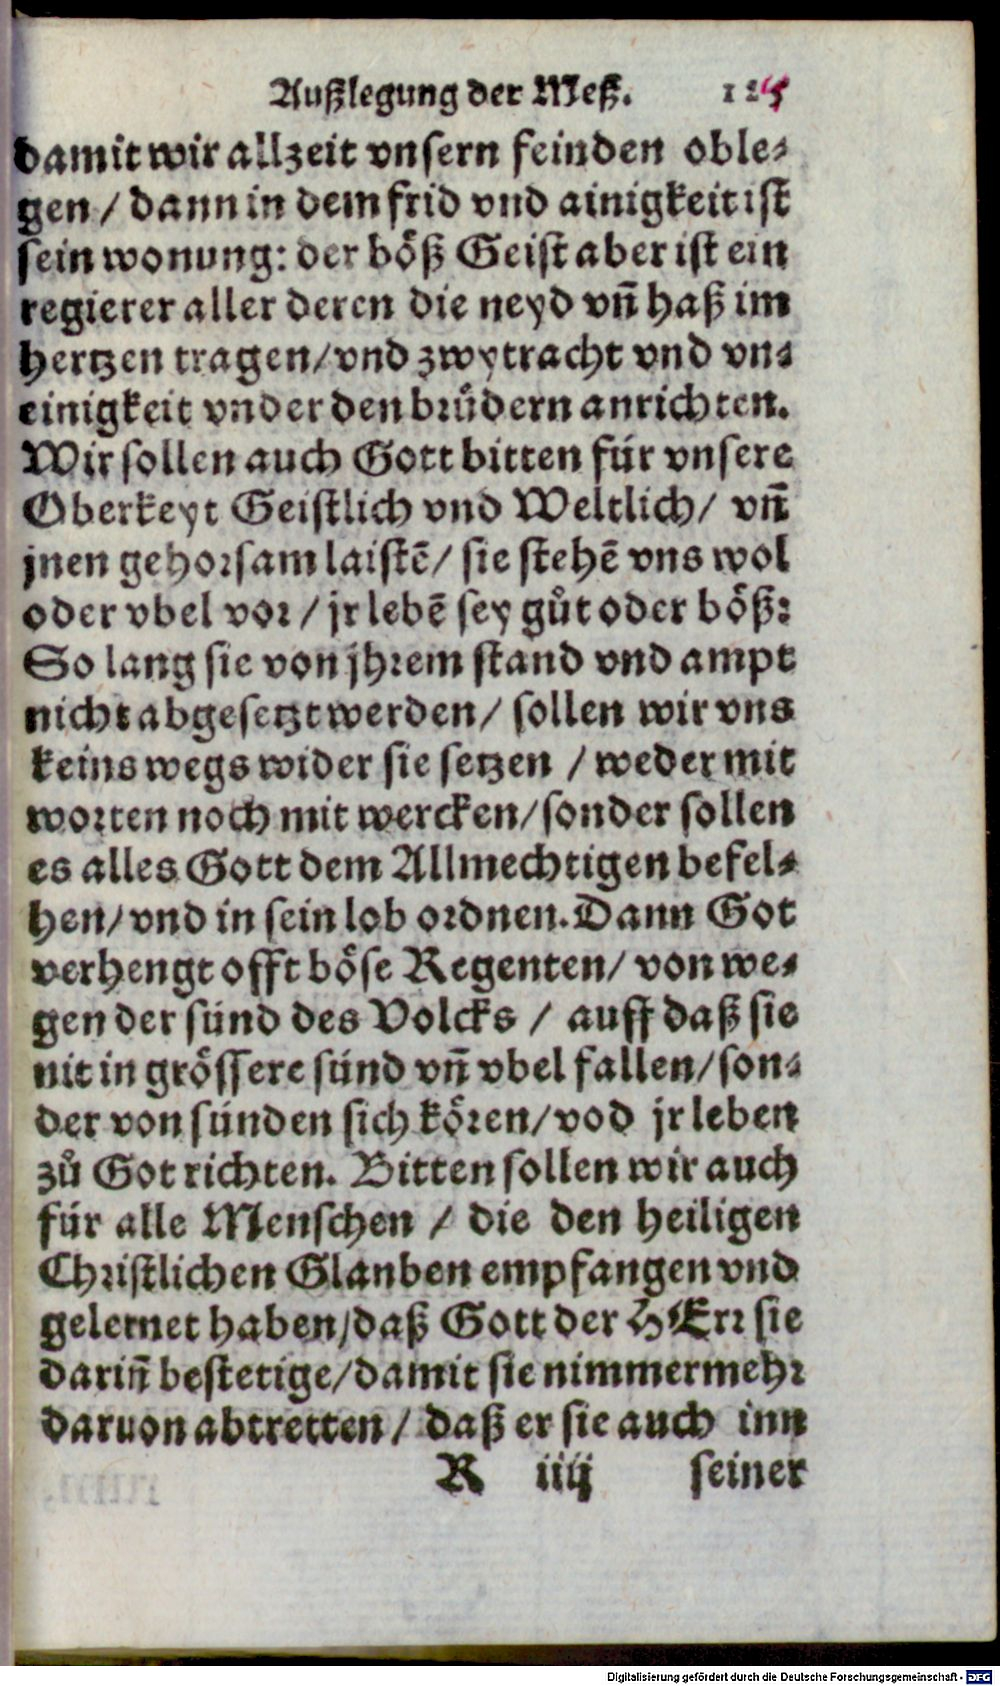 Außlegung der Meß. 125
damit wir allzeit vnsern feinden oble⸗
gen / dann in dem frid vnd ainigkeit ist
sein wonung: der böß Geist aber ist ein
regierer aller deren die neyd vñ haß im
hertzen tragen/ vnd zwytracht vnd vn⸗
einigkeit vnder den bruͤdern anrichten.
Wir sollen auch Gott bitten für vnsere
Oberkeyt Geistlich vnd Weltlich/ vñ
jnen gehorsam laistẽ/ sie stehẽ vns wol
oder vbel vor / jr lebẽ sey guͦt oder böß:
So lang sie von jhrem stand vnd ampt
nicht abgesetzt werden/ sollen wir vns
keins wegs wider sie setzen / weder mit
worten noch mit wercken/ sonder sollen
es alles Gott dem Allmechtigen befel⸗
hen/ vnd in sein lob ordnen. Dann Got
verhengt offt böse Regenten/ von we⸗
gen der sünd des Volcks / auff daß sie
nit in grössere sünd vñ vbel fallen/ son⸗
der von sünden sich kören/ vod jr leben
zuͦ Got richten. Bitten sollen wir auch
für alle Menschen / die den heiligen
Christlichen Glanben empfangen vnd
gelernet haben/ daß Gott der HErr sie
dariñ bestetige/ damit sie nimmermehr
daruon abtretten / daß er sie auch inn
R iiij seiner
Digitalisierung gefördert durch die Deutsche Forschungsgemeinschaft - DFG